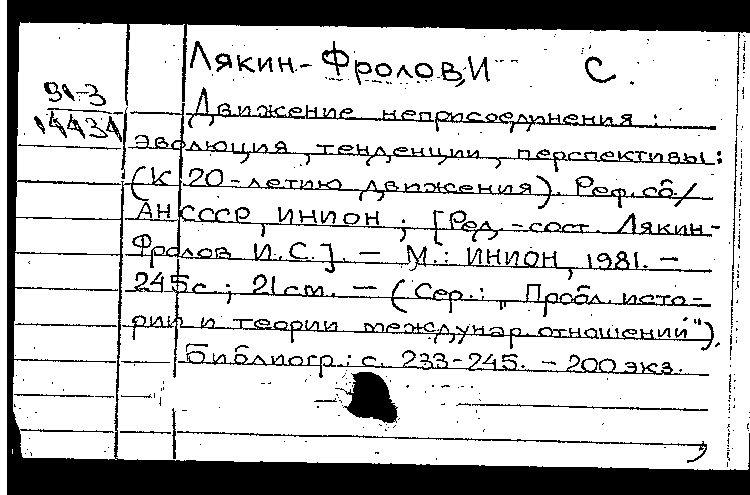 Лякин-Фролов, И С.
Движение неприсоединения :
эволюция, тенденции, перспективы:
(К 20-летию движения). Реф. сб./
АН СССР, ИНИОН ; [Ред.-сост. Лякин-
Фролов И.С.]. — М.: ИНИОН, 1981. —
245с.; 21см. — (Сер.: „Пробл. исто-
рии и теории междунар. отношений").
Библиогр.: с. 233-245. — 200 экз.